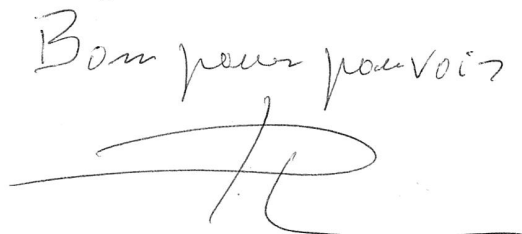 Bon pour pouvoir